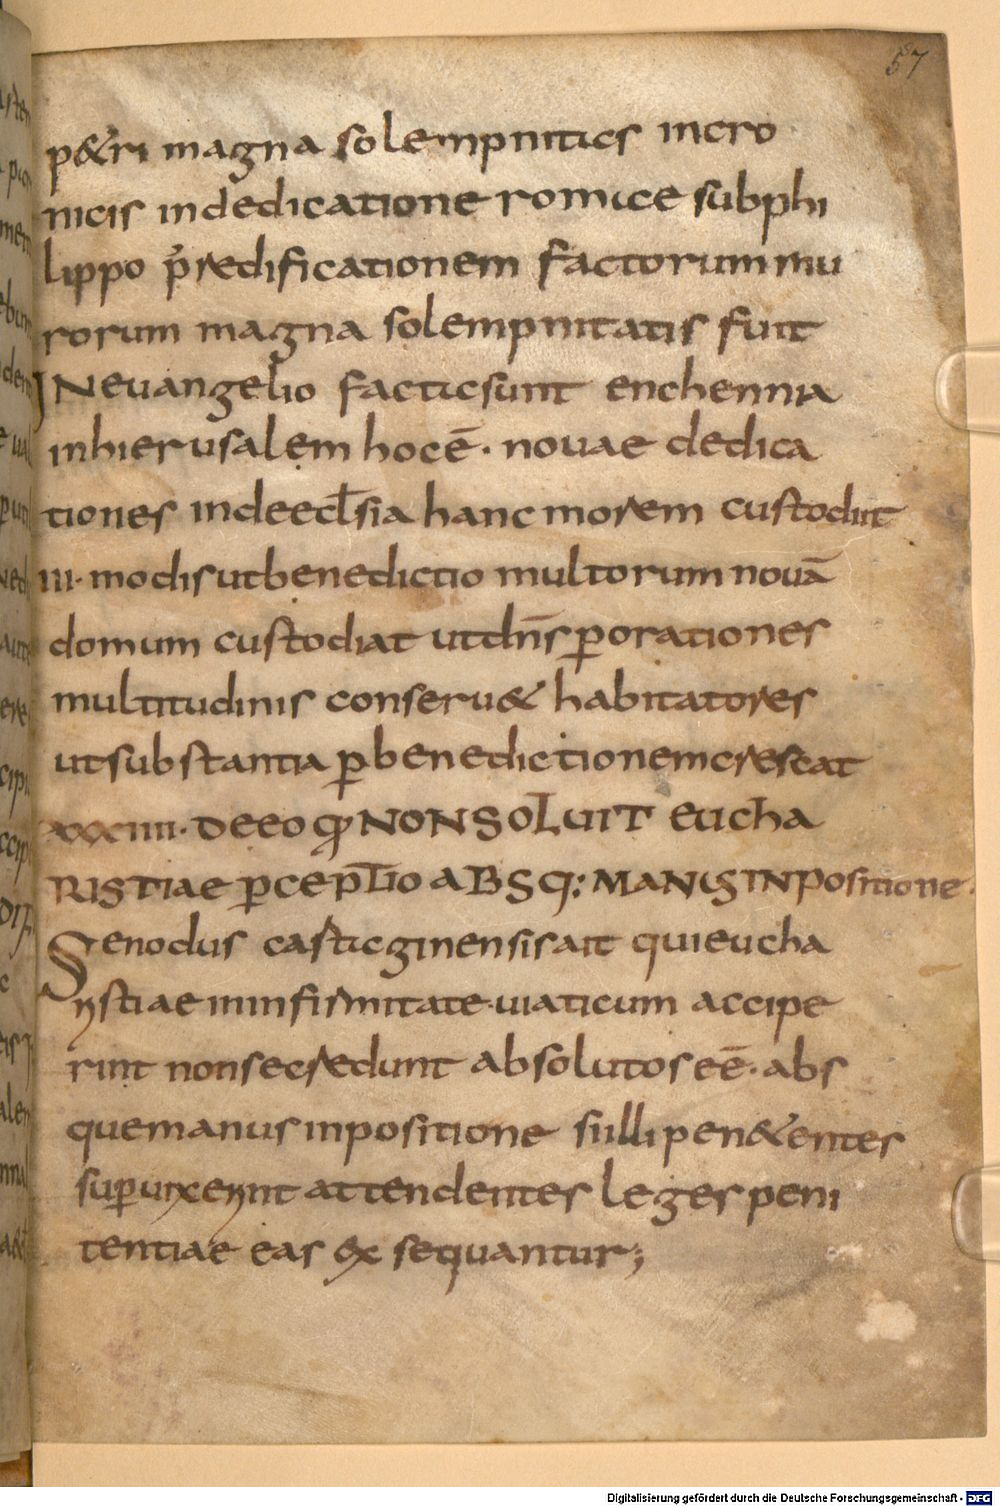 57
p&ri magna solempnitas incro
nicis indedicatione romace subphi
lippo p̄redificationem factorum mu
rorum magna solempnitatis fuit
INevangelio facta sunt enchennia
inhierusalem hocē· novae dedica
tiones indeecl̄sia hanc morem custodiit
III· modis utbenedictio multorum novā
domum custodiat utdn̄s ꝑorationes
multitudinis conseru& habitatores
utsubstantia ꝑbenedictionem crescat
XXXIIII· DEEO qD NONSOLUIT EUCHA
RISTIAE ꝑCEPTIO ABSQ: MANUS INPOSITIONE·
Senodus cartaginensis ait quieucha
ristiae ininfirmitate uiaticum accipe
rint nonsecredunt absolutos eē· abs
quemanus inpositione siilli pen&entes
suꝑuixerint attendentes leges peni
tentiae eas exsequantur;
Digitalisierung gefördert durch die Deutsche Forschungsgemeinschaft - DFG